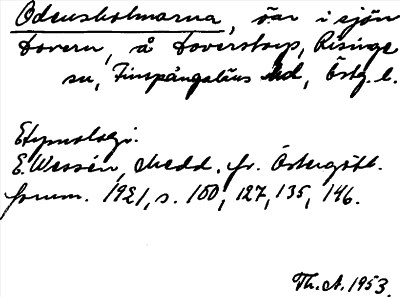 Odensholmarna, öar i sjön
Dovern, å Doverstorp, Risinge
sn, Finspångaläns hd, Östg. l.
Etymologi.
E. Wessén, Medd. fr. Östergötl.
fornm. 1921, s. 100, 127, 135, 146.
Th. A. 1953.